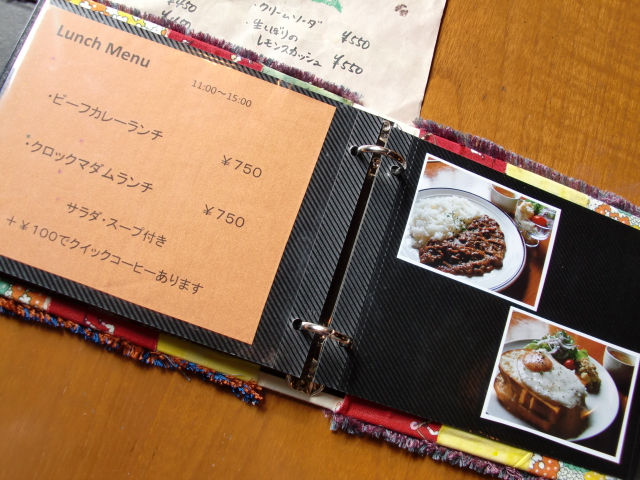 ¥450
¥400
・クリームソーダ ¥550
・生しぼりの
レモンスカッシュ ¥550
Lunch Menu
11:00～15:00
・ビーフカレーランチ
￥750
・クロックマダムランチ
￥750
サラダ・スープ付き
＋￥100でクイックコーヒーあります